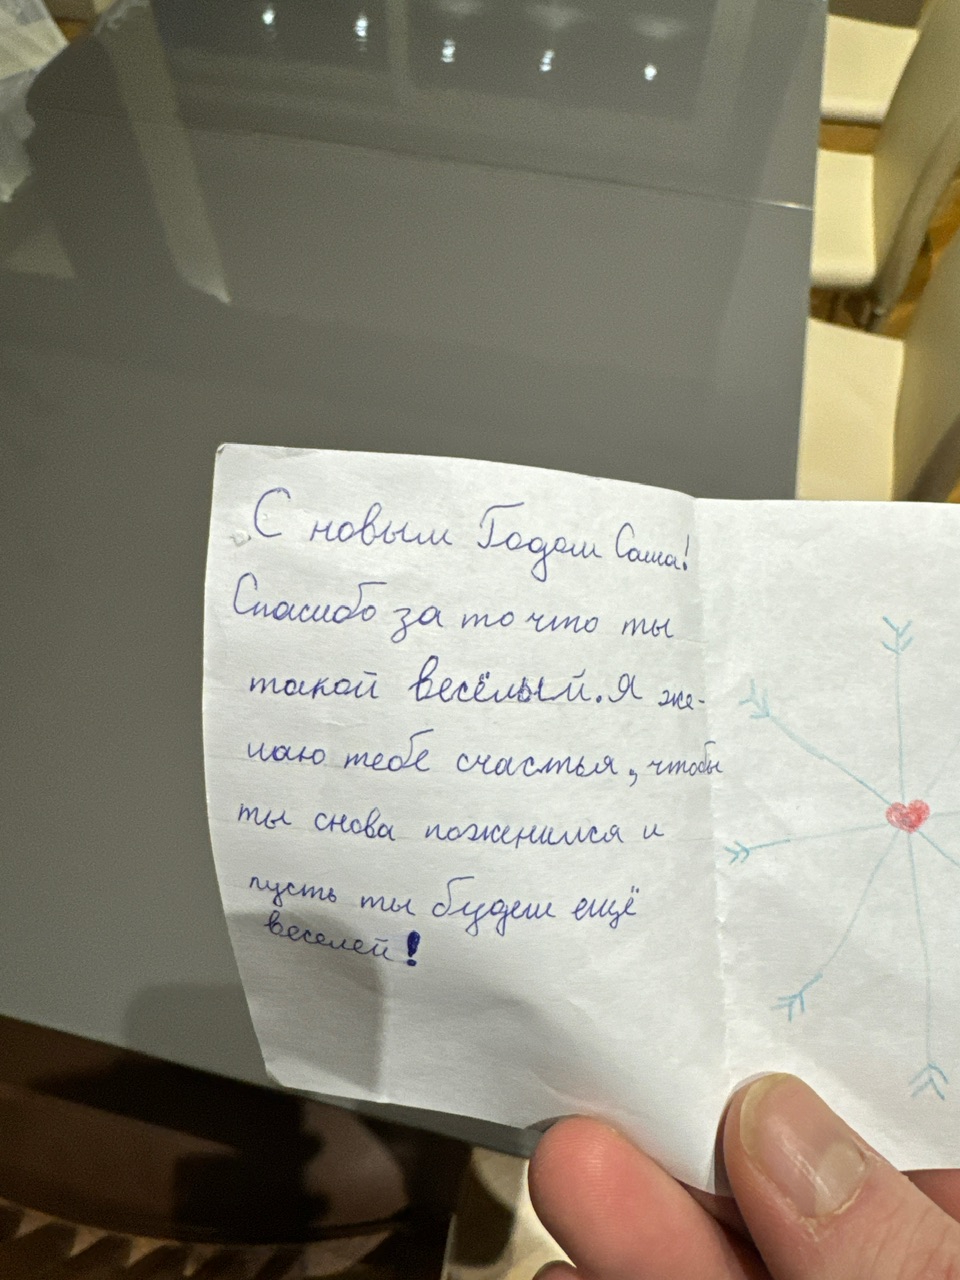 С новым Годом Саша!
Спасибо за то что ты
такой весёлый. Я же-
лаю тебе счастья, чтобы
ты снова поженился и
пусть ты будеш ещё
веселей!